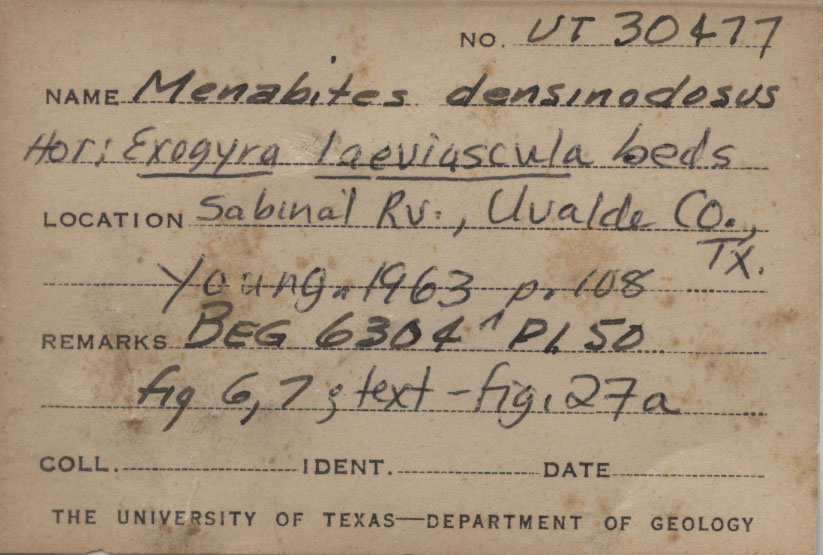 NO. UT 30477
NAME Menabites densinodosus
Hor: Exogyra laeviuscula beds
LOCATION Sabinal Rv., Uvalde Co.,
Tx.
Young 1963 p. 108
REMARKS BEG 6304 ^ Pl. 50
fig 6, 7; text-fig. 27a
COLL. IDENT. DATE
THE UNIVERSITY OF TEXAS—DEPARTMENT OF GEOLOGY